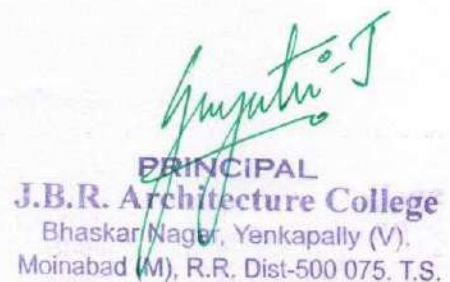 Gayatri-J
PRINCIPAL
J.B.R. Architecture College
Bhaskar Nager, Yenkapally (V),
Moinabad (M), R.R. Dist-500 075. T.S.